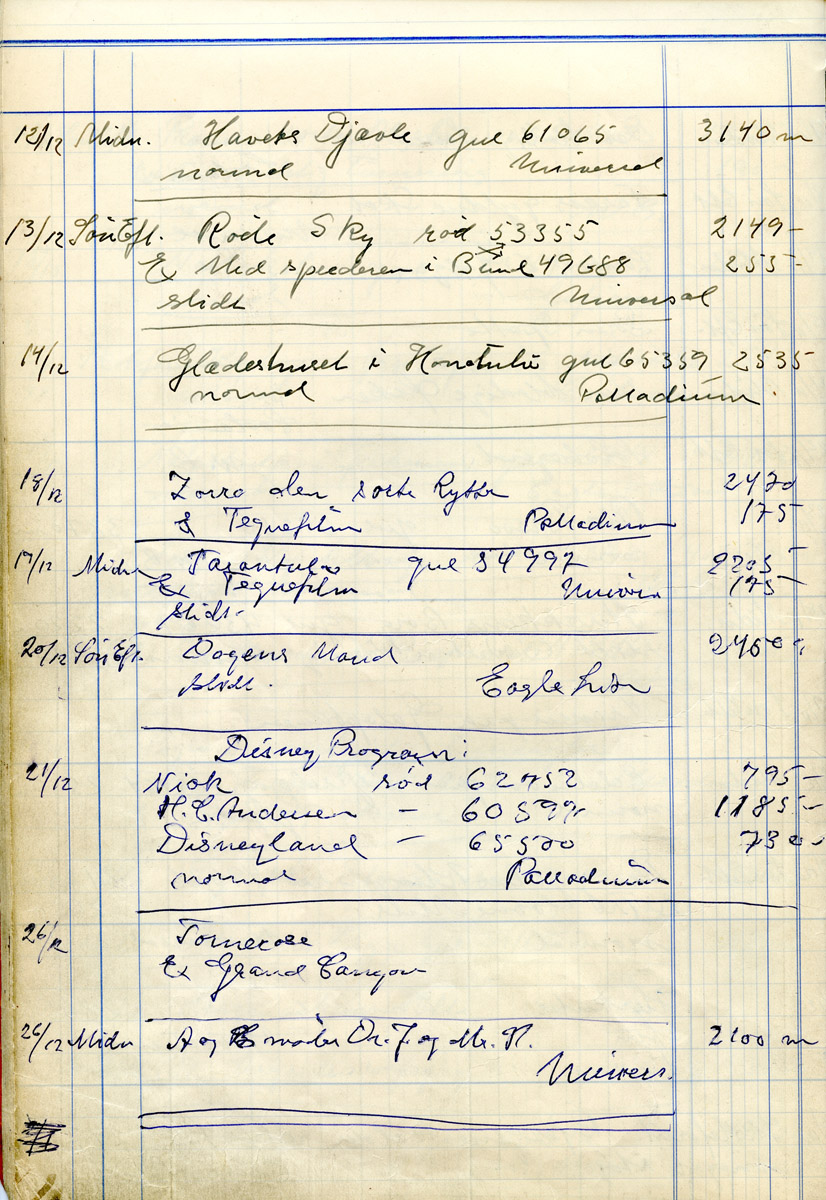 12/12 Midn. Havets Djævle gul 61065 3140 m
normal Universal
13/12 SønEft. Røde Sky rød 53355 2149-
Ex Med speederen i Bund 49688 255-
slidt Universal
14/12 Glædeshuset i Honolulu gul 65359 2535
normal Palladium.
18/12 Zorro den sorte Rytter 2470
& Tegnefilm Palladium 175
19/12 Midn Tarantula gul 54997 2205-
Ex Tegnefilm Univer. 175-
slidt-
20/12 SønEft. Dagens Mand 2460
slidt. Eagle Lion
Disney Program:
21/12 Niok rød 62752 795-
H.C. Andersen - 60599 1185-
Disneyland - 65570 730-
normal Palladium
26/12 Tornerose
Ex Grand Canyon
26/12 Midn A og C møder Dr. J. og Mr. H. 2100 m
Univers.